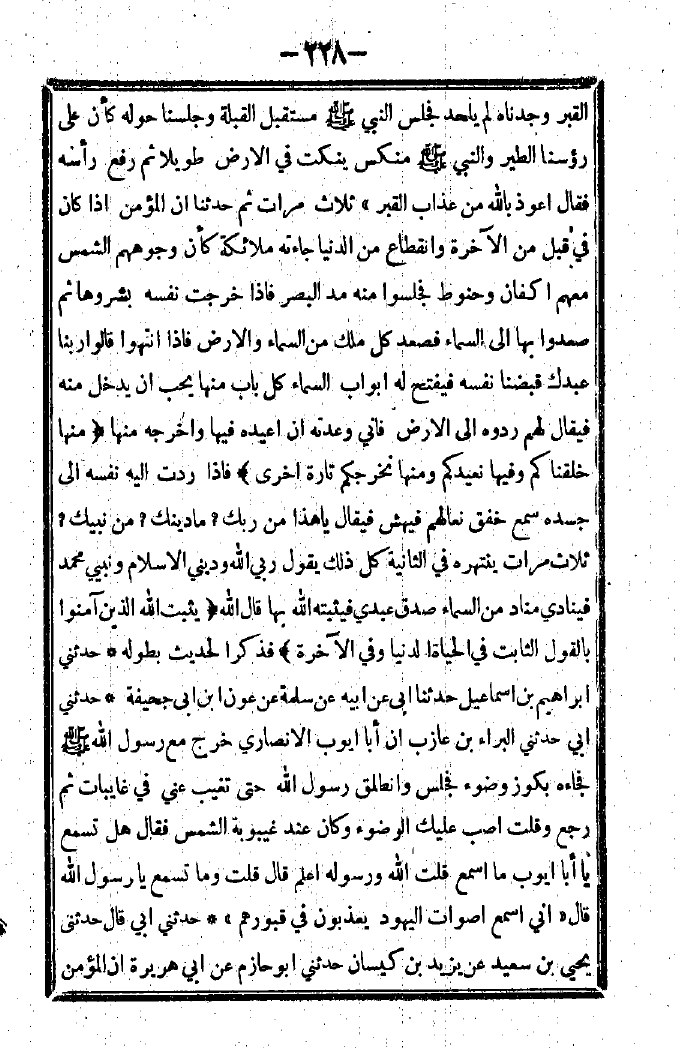 — ٢٢٨ —
القبر وجدناه لم يلحد فجلس النبي ﷺ مستقبل القبلة وجلسنا حوله كأن على
رؤسنا الطير والنبي ﷺ منكس ينكت في الارض طويلا ثم رفع رأسه
فقال اعوذ بالله من عذاب القبر » ثلاث مرات ثم حدثنا ان المؤمن اذا كان
في قبل من الآخرة وانقطاع من الدنيا جاءته ملائكة كأن وجوههم الشمس
معهم اكفان وحنوط فجلسوا منه مد البصر فاذا خرجت نفسه بشروها ثم
صعدوا بها الى السماء فصعد كل ملك من السماء والارض فاذا انتهوا قالوا ربنا
عبدك قبضنا نفسه فيفتح له ابواب السماء كل باب منها يحب ان يدخل منه
فيقال لهم ردوه الى الارض فاني وعدته ان اعيده فيها واخرجه منها ﴿ منها
خلقناكم وفيها نعيدكم ومنها نخرجكم تارة اخرى ﴾ فاذا ردت اليه نفسه الى
جسده سمع خفق نعالهم فيهش فيقال ياهذا من ربك؟ مادينك؟ من نبيك؟
ثلاث مرات ينتهره في الثانية كل ذلك يقول ربي الله وديني الاسلام ونبيي محمد
فينادي مناد من السماء صدق عبدي فيثبته الله بها قال الله ﴿ يثبت الله الذين آمنوا
بالقول الثابت في الحياة الدنيا وفي الآخرة ﴾ فذكر الحديث بطوله * حدثني
ابراهيم بن اسماعيل حدثنا ابى عن ابيه عن سلمة عن عون ابن ابى جحيفة * حدثني
ابي حدثني البراء بن عازب ان أبا ايوب الانصاري خرج مع رسول الله ﷺ
فجاءه بكوز وضوء فجلس وانطلق رسول الله حتى تغيب عني في غايبات ثم
رجع وقلت اصب عليك الوضوء وكان عند غيبوبة الشمس فقال هل تسمع
يا أبا ايوب ما اسمع قلت الله ورسوله اعلم قال قلت وما تسمع يا رسول الله
قال « اني اسمع اصوات اليهود يعذبون في قبورهم » * حدثني ابي قال حدثنى
يحيي بن سعيد عن يزيد بن كيسان حدثني ابو حازم عن ابي هريرة ان المؤمن